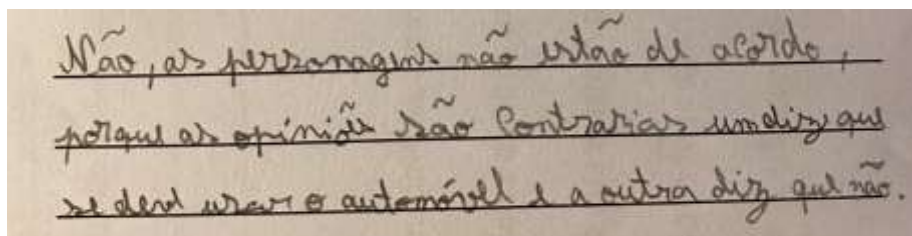 Não, as personagens não estão de acordo,
porque as opiniões são contrarias um diz que
se deve usar o automóvel e a outra diz que não.